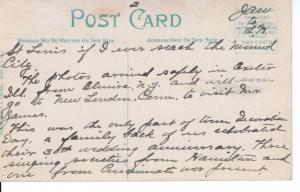 2
POST CARD
MESSAGE MAY BE WRITTEN ON THIS SIDE
ADDRESS ONLY ON THIS SIDE
St Louis if I ever reach the Mound
City.
The photos arrived safely in Exeter
Ill. from Elmira N.Y. and will soon
go to New London, Conn. to visit
James.
This was the only part of town Decoration
Day, a family back of us celebrated
their 30th wedding anniversary. Three
singing societies from Hamilton and
one from Cincinnati were present